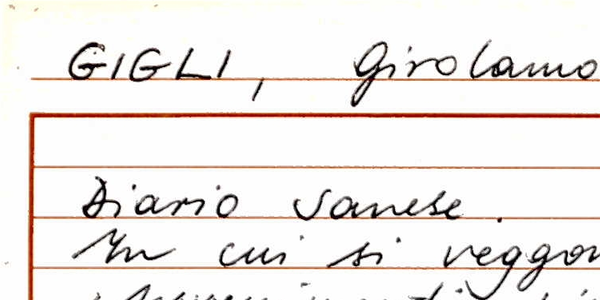 GIGLI, Girolamo
Diario sanese.
In cui si veggon